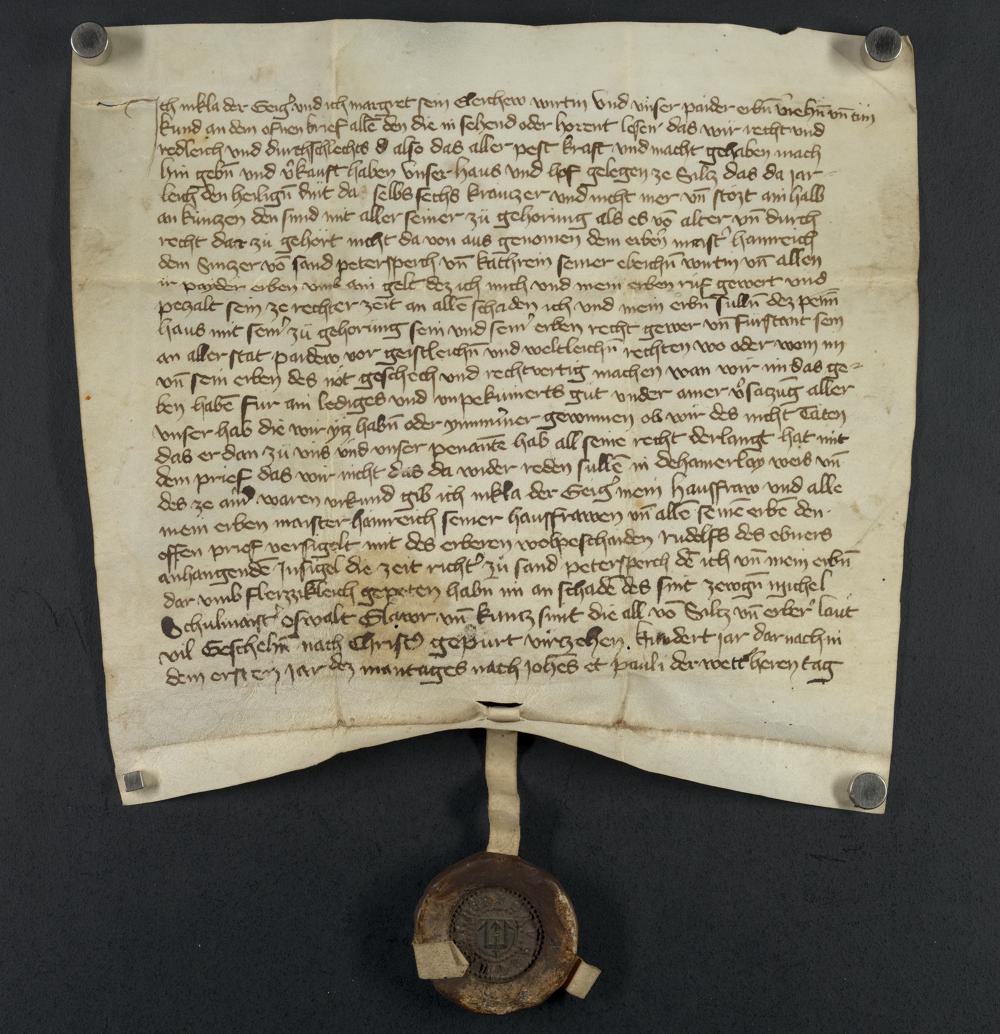 Ich nikla der Geiġ vnd ich margret sein Eleichew wirtin vnd vnser paider erbn̄ v̓iehn̄ vn̄ tün
kund an dem ofnen brief allen̄ den die in sehend oder horent lesen das wir recht vnd
redleich vnd durchslechts also das aller pest kraft vnd macht gehaben mach
hin gebn̄ vnd v̓kauft haben vnser haus vnd hof gelegen ze Silcz das da iar
leich den heilign̄ dint da selbs sechs krauczer vnd nicht mer vn̄ stozt ain halb
an kunczen den smid mit aller seiner zü gehorung als es vō alter vn̄ durch
recht dar zü gehört nicht da von aus genomen dem erbern̄ maist̓ hainreich
dem Sinczer vō sand petersperch vn̄ kathrein seiner eleichn̄ wirtin vn̄ allen
ir paider erben vmb ain gelt dez ich mich vnd mein erben ruf gewert vnd
peczalt sein ze rechter zeit an allen̄ schaden ich vnd mein erbn̄ sulln̄ dez penn̄
haus mit sein̓ zü gehorung sein vnd sein̓ erben recht gewer vn̄ furstant sein
an aller stat paidew vor geistleichn̄ vnd weltleichn̄ rechten wo oder wem im
vn̄ sein erben des not geschech vnd rechtvertig machen wan wir im das ge-
ben habē fur ain lediges vnd vnpekumerts gut vnder ainer v̓saczūg aller
vnser hab die wir ycz habn̄ oder ymm̓mer gewinnen ob wir des nicht Täten
das er dan zü vns vnd vnser penante hab all seine recht derlangt hat mit
dem prief das wir nicht das da wider reden sullē in dehainerlay weis vn̄
des ze ain̓ waren vrkund gib ich nikla der Geiġ mein hausfraw vnd alle
mein erben maister hainreich seiner hausfrawen vn̄ allē seinē erbē den
offen prief versigelt mit des erberen wolpeschaiden rudolfs des ebners
anhangendē Insigel die zeit richt̓ zü sand petersperch dē ich vn̄ mein erbn̄
dar vmb fleizzikleich gepeten habn im an schadē des sint zewgn̄ michel
Schulmaist̓ oswalt Slawr vn̄ kuncz smit die all vō Silcz vn̄ erber laut
vil Geschehn̄ nach Christ̓ gepurt virzehen hundert jar darnach in
dem ersten jar dez mantages nach johēs et pauli der wetterheren tag